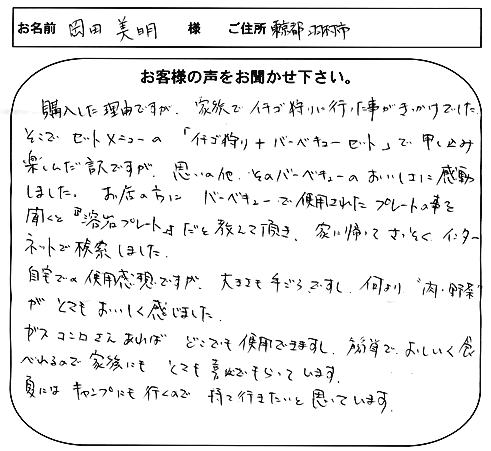 お名前 岡田 美明 様 ご住所 東京都 羽村市
お客様の声をお聞かせ下さい。
購入した理由ですが、家族でイチゴ狩りに行った事がきっかけでした。
そこでセットメニューの「イチゴ狩り+バーベキューセット」で申し込み
楽しんだ訳ですが、思いの他、そのバーベキューのおいしさに感動
しました。お店の方にバーベキューで使用されたプレートの事を
聞くと『溶岩プレート』だと教えて頂き、家に帰ってさっそくインター
ネットで検索しました。
自宅での使用感想ですが、大きさも手ごろですし、何より"肉・野菜"
がとてもおいしく感じました。
ガスコンロさえあればどこでも使用できますし、簡単でおいしく食
べれるので家族にもとても喜んでもらっています。
夏にはキャンプにも行くので持って行きたいと思っています。